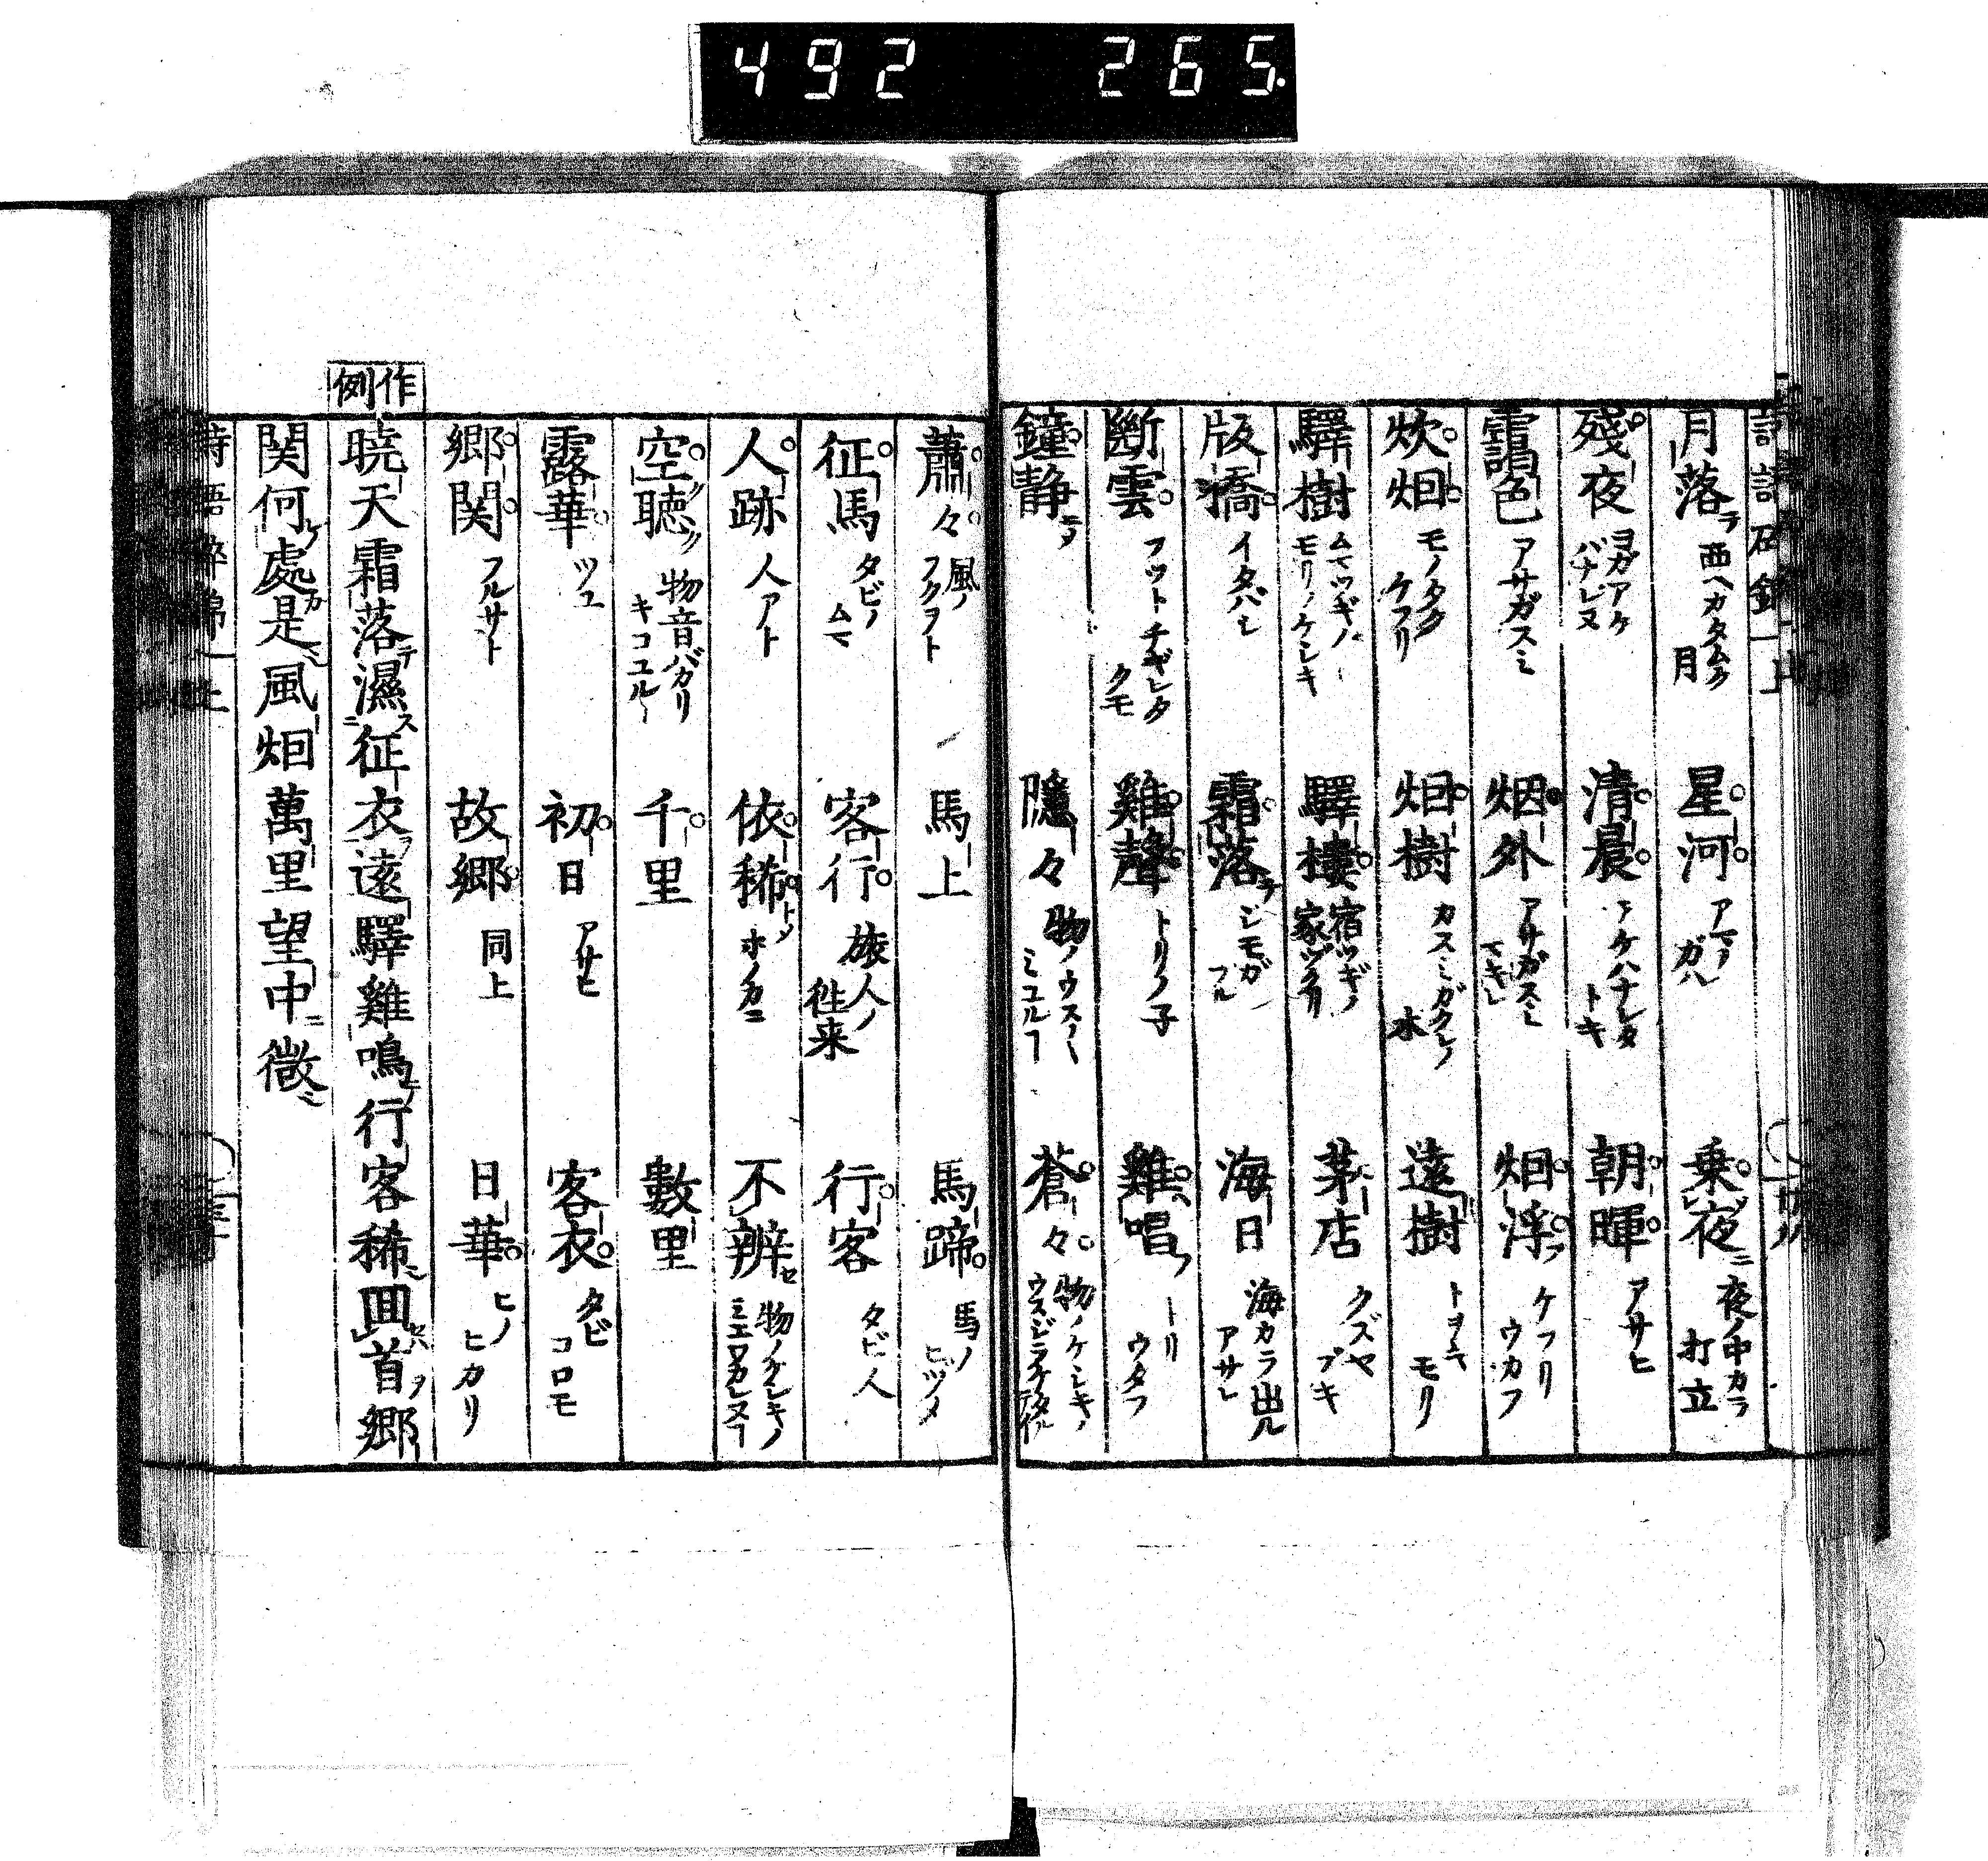 492 265.
月落ラ 西ヘカタムク月 星河 アマノガハ 乗夜ニ 夜ノ中カラ打立
殘夜 ヨガアケバナレヌ 清晨 アケハナレタトキ 朝暉 アサヒ
靄色 アサガスミ 烟外 アサガスミ 烟浮フ ケフリウカフ
炊烟 モノタクケフリ 烟樹 カスミガクレノ木 遠樹 モリ
驛樹 ムマツギノモリノケシキ 驛樓 宿ツギノ家ヅクリ 茅店 クズヤブキ
版橋 イタバシ 霜落ラ シモガフル 海日 海カラ出ル アサヒ
斷雲 フツトチギレタクモ 雞聲 トリノ子 雞唱フ トリウタフ
鐘静ニメ 隱々 物ノウス〱ミユルヿ 蒼々 物ノケシキノウスジラケタル
蕭々 風ノフクヲト 馬上 馬蹄 馬ノヒヅメ
征馬 タビノムマ 客行 旅人ノ徃来 行客 タビ人
人跡 人アト 依稀トメ ホノカニ 不辨セ 物ノケシキノミエワカレヌヿ
空聽ク 物音バカリキコユルヿ 千里 數里
露華 ツユ 初日 アサヒ 客衣 タビコロモ
郷関 フルサト 故郷 同上 日華 ヒノヒカリ
作例
暁天霜落テ濕ス征衣ヲ遠驛雞鳴行客稀ニ回首郷
関何處カ是風烟萬里望中ニ微ニ